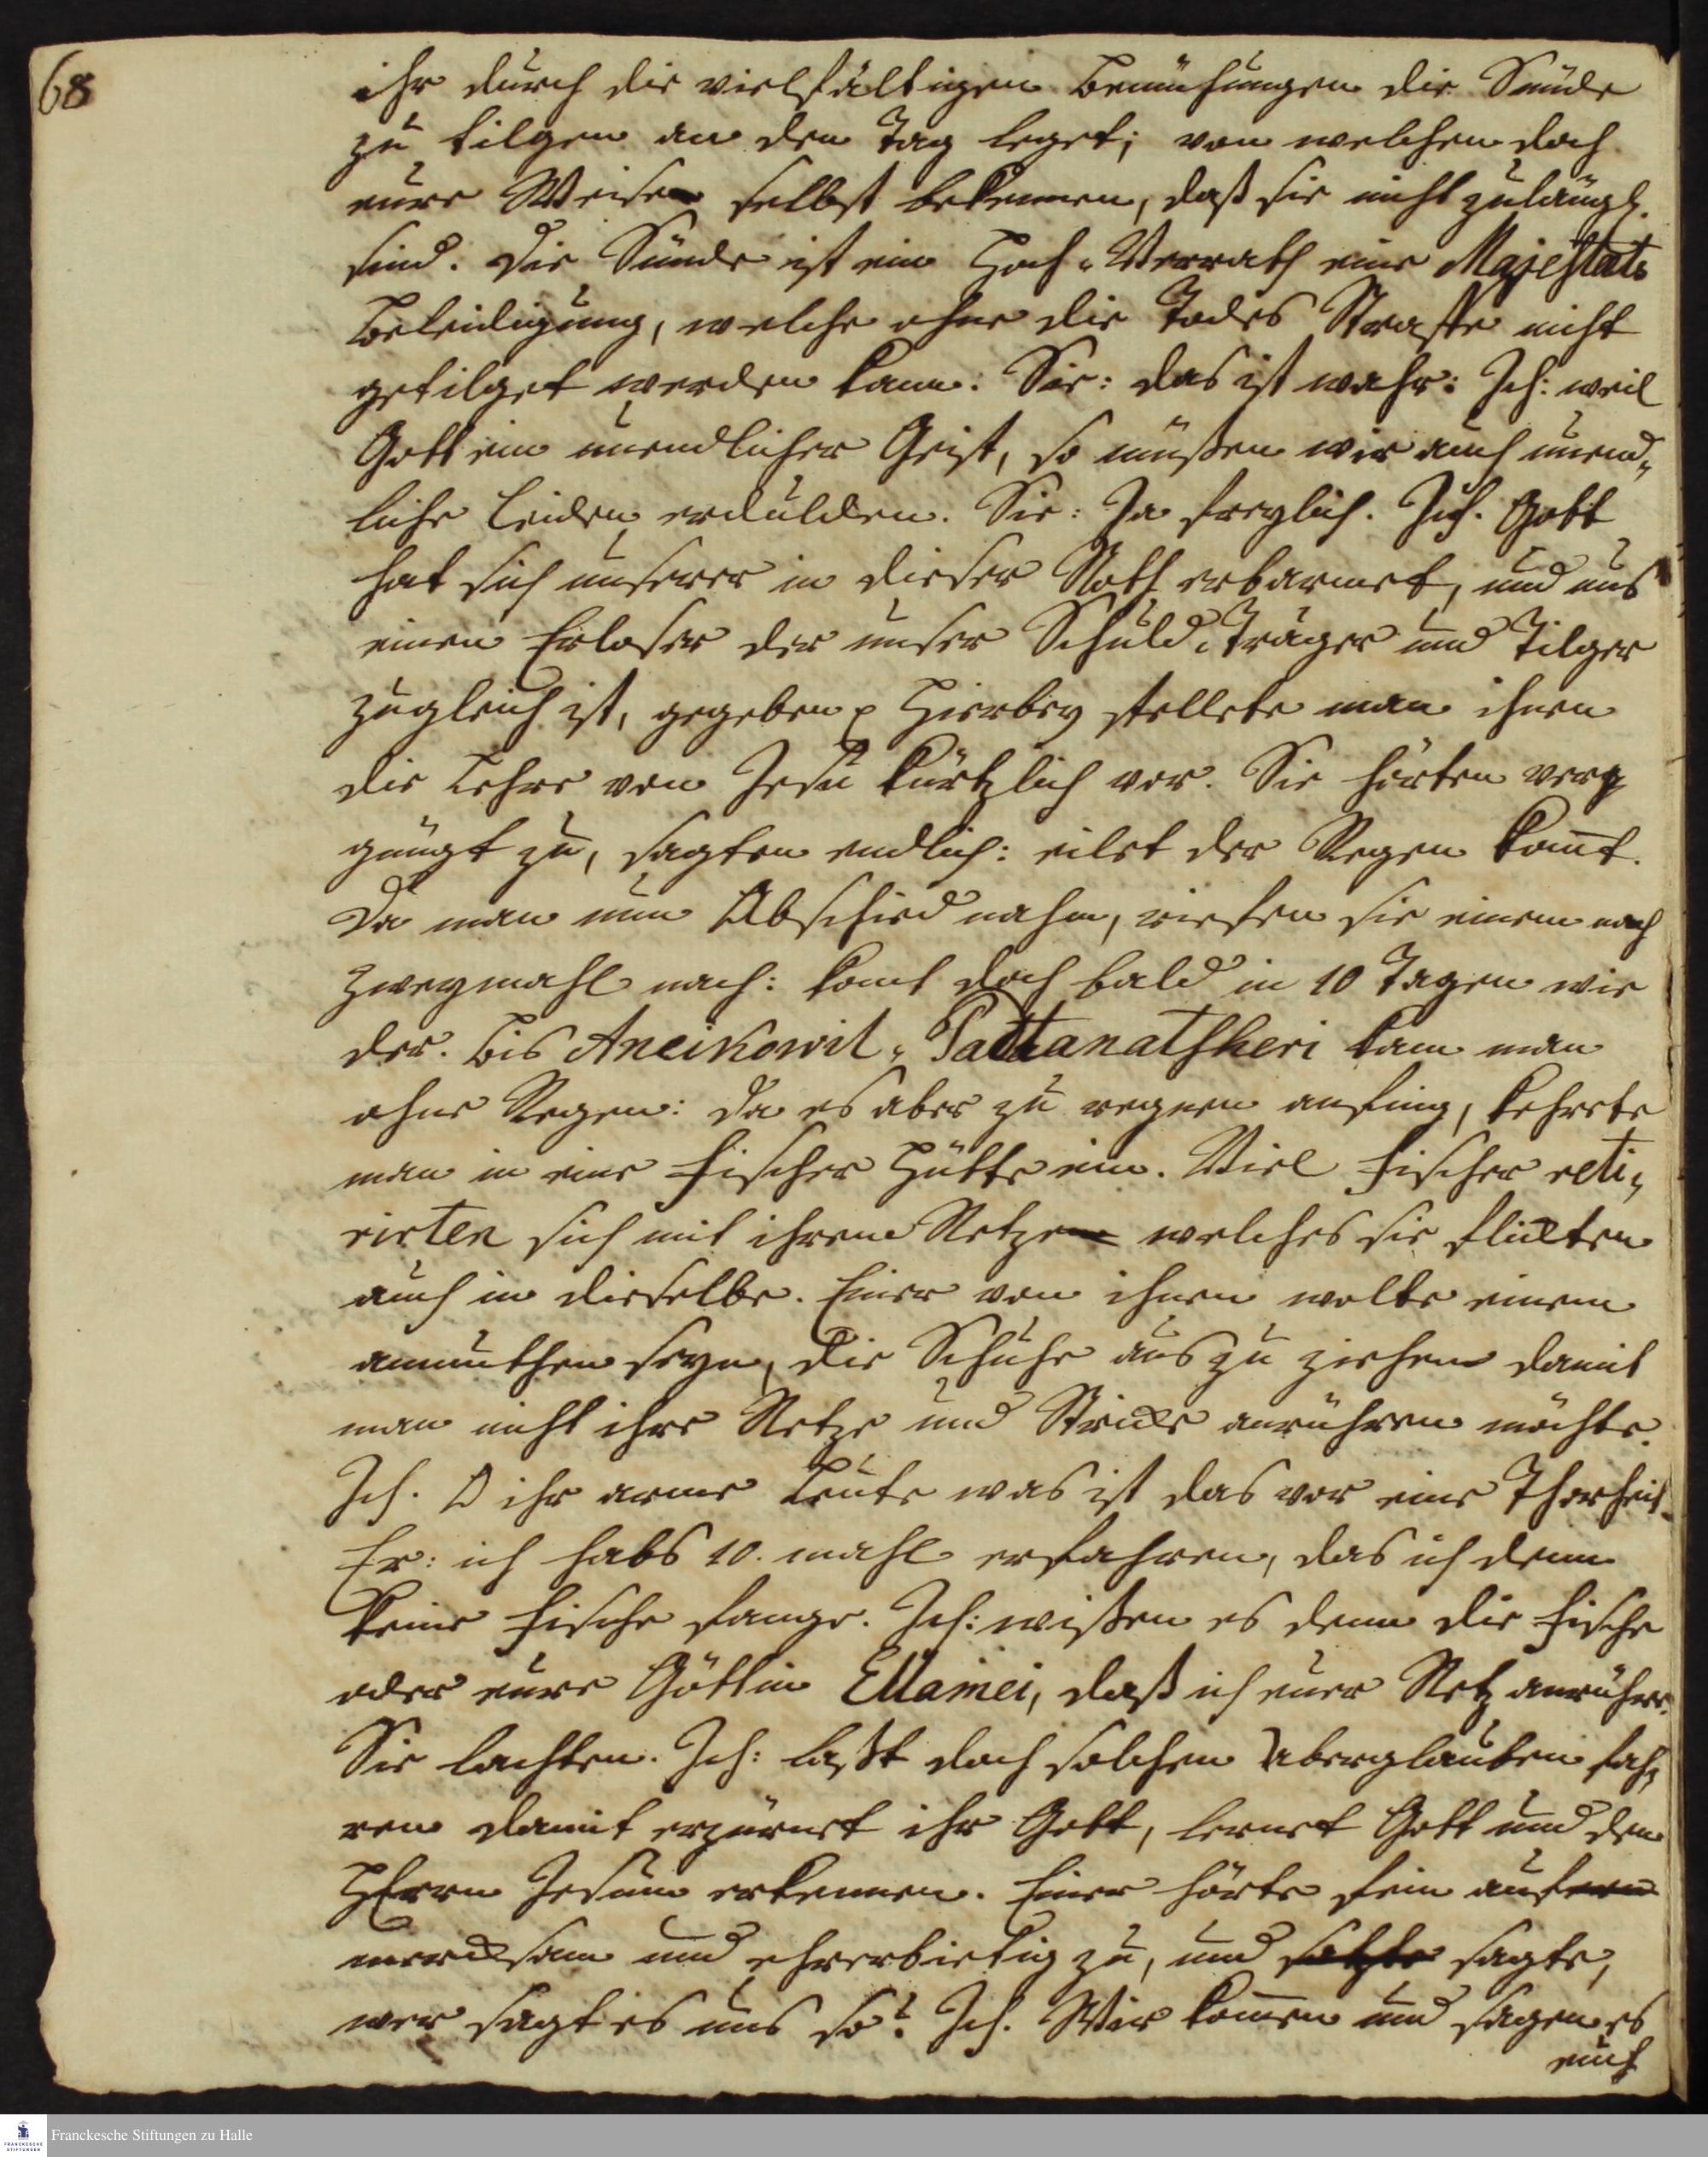 68
ihr durch die vielfältigen Bemühungen die Sünde
zu tilgen an den Tag leget; von welchen doch
eure Weisen selbst bekennen, daß sie nicht zulängl.
sind. Die Sünde ist ein Hoch-Verrath eine Majestäts
Beleidigung, welche ohne die Todes Straffe nicht
getilget werden kann. Sie: das ist wahr: Ich: weil
Gott ein unendlicher Geist, so müßen wir auch unend-
liche Leiden erdulden. Sie: Ja freylich. Ich. Gott
hat sich unserer in dieser Noth erbarmet, und uns
einen Erlöser der unser Schuld-Träger und Tilger
zugleich ist, gegeben. Hierbey stellete man ihnen
die Lehre von Jesu kürtzlich vor. Sie hörten verg
gnügt zu, sagten endlich: eilet der Regen komt.
Da man nun Abschied nahm, rieffen sie einem noch
zweymahl nach: komt doch bald in 10 Tagen wie
der. Bis Aneikowil-Pattanatsheri kam man
ohne Regen: da es aber zu regnen anfing, kehrete
man in eine Fischer Hütte ein. Viel Fischer reti-
rirten sich mit ihrem Netze welches sie flickten
auch in dieselbe. Einer von ihnen wolte einem
anmuthen seyn, die Schuhe aus zu ziehen damit
man nicht ihre Netze und Stricke anrühren möchte.
Ich. O ihr arme Leute was ist das vor eine Thorheit.
Er: ich habs 10. mahl erfahren, das ich denn
keine Fische fange. Ich: wißen es denn die Fische
oder eure Göttin Ellamei, daß ich euer Netz anrühre.
Sie lachten. Ich: laßt doch solchen Aberglauben fah-
ren damit erzürnet ihr Gott, lernet Gott und den
HErrn Jesum erkennen. Einer hörte fein auf
mercksam und ehrerbietig zu, und sagte,
wer sagt es uns so? Ich. Wir komen und sagen es
euch
Franckesche Stiftungen zu Halle
FRANCKESCHE STIFTUNGEN